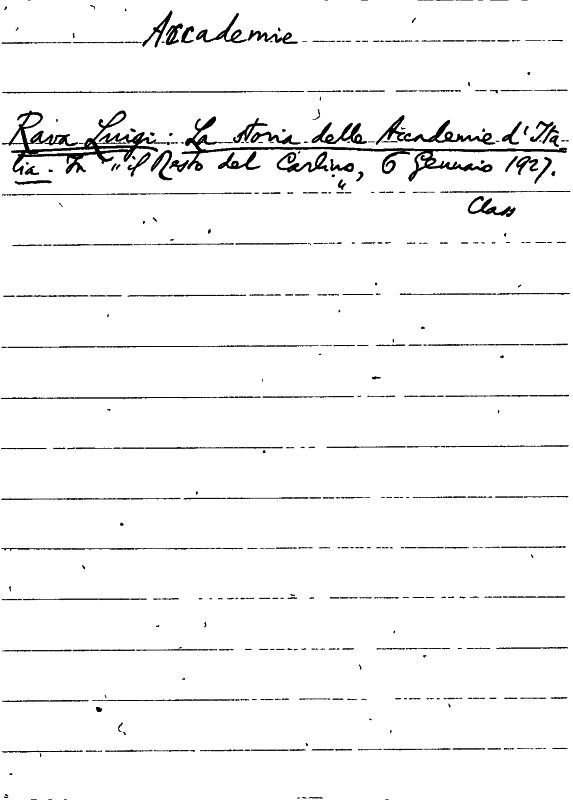 Accademie
Rava Luigi. La storia delle Accademie d'Ita-
lia. In "il Resto del Carlino", 6 Gennaio 1927.
Class